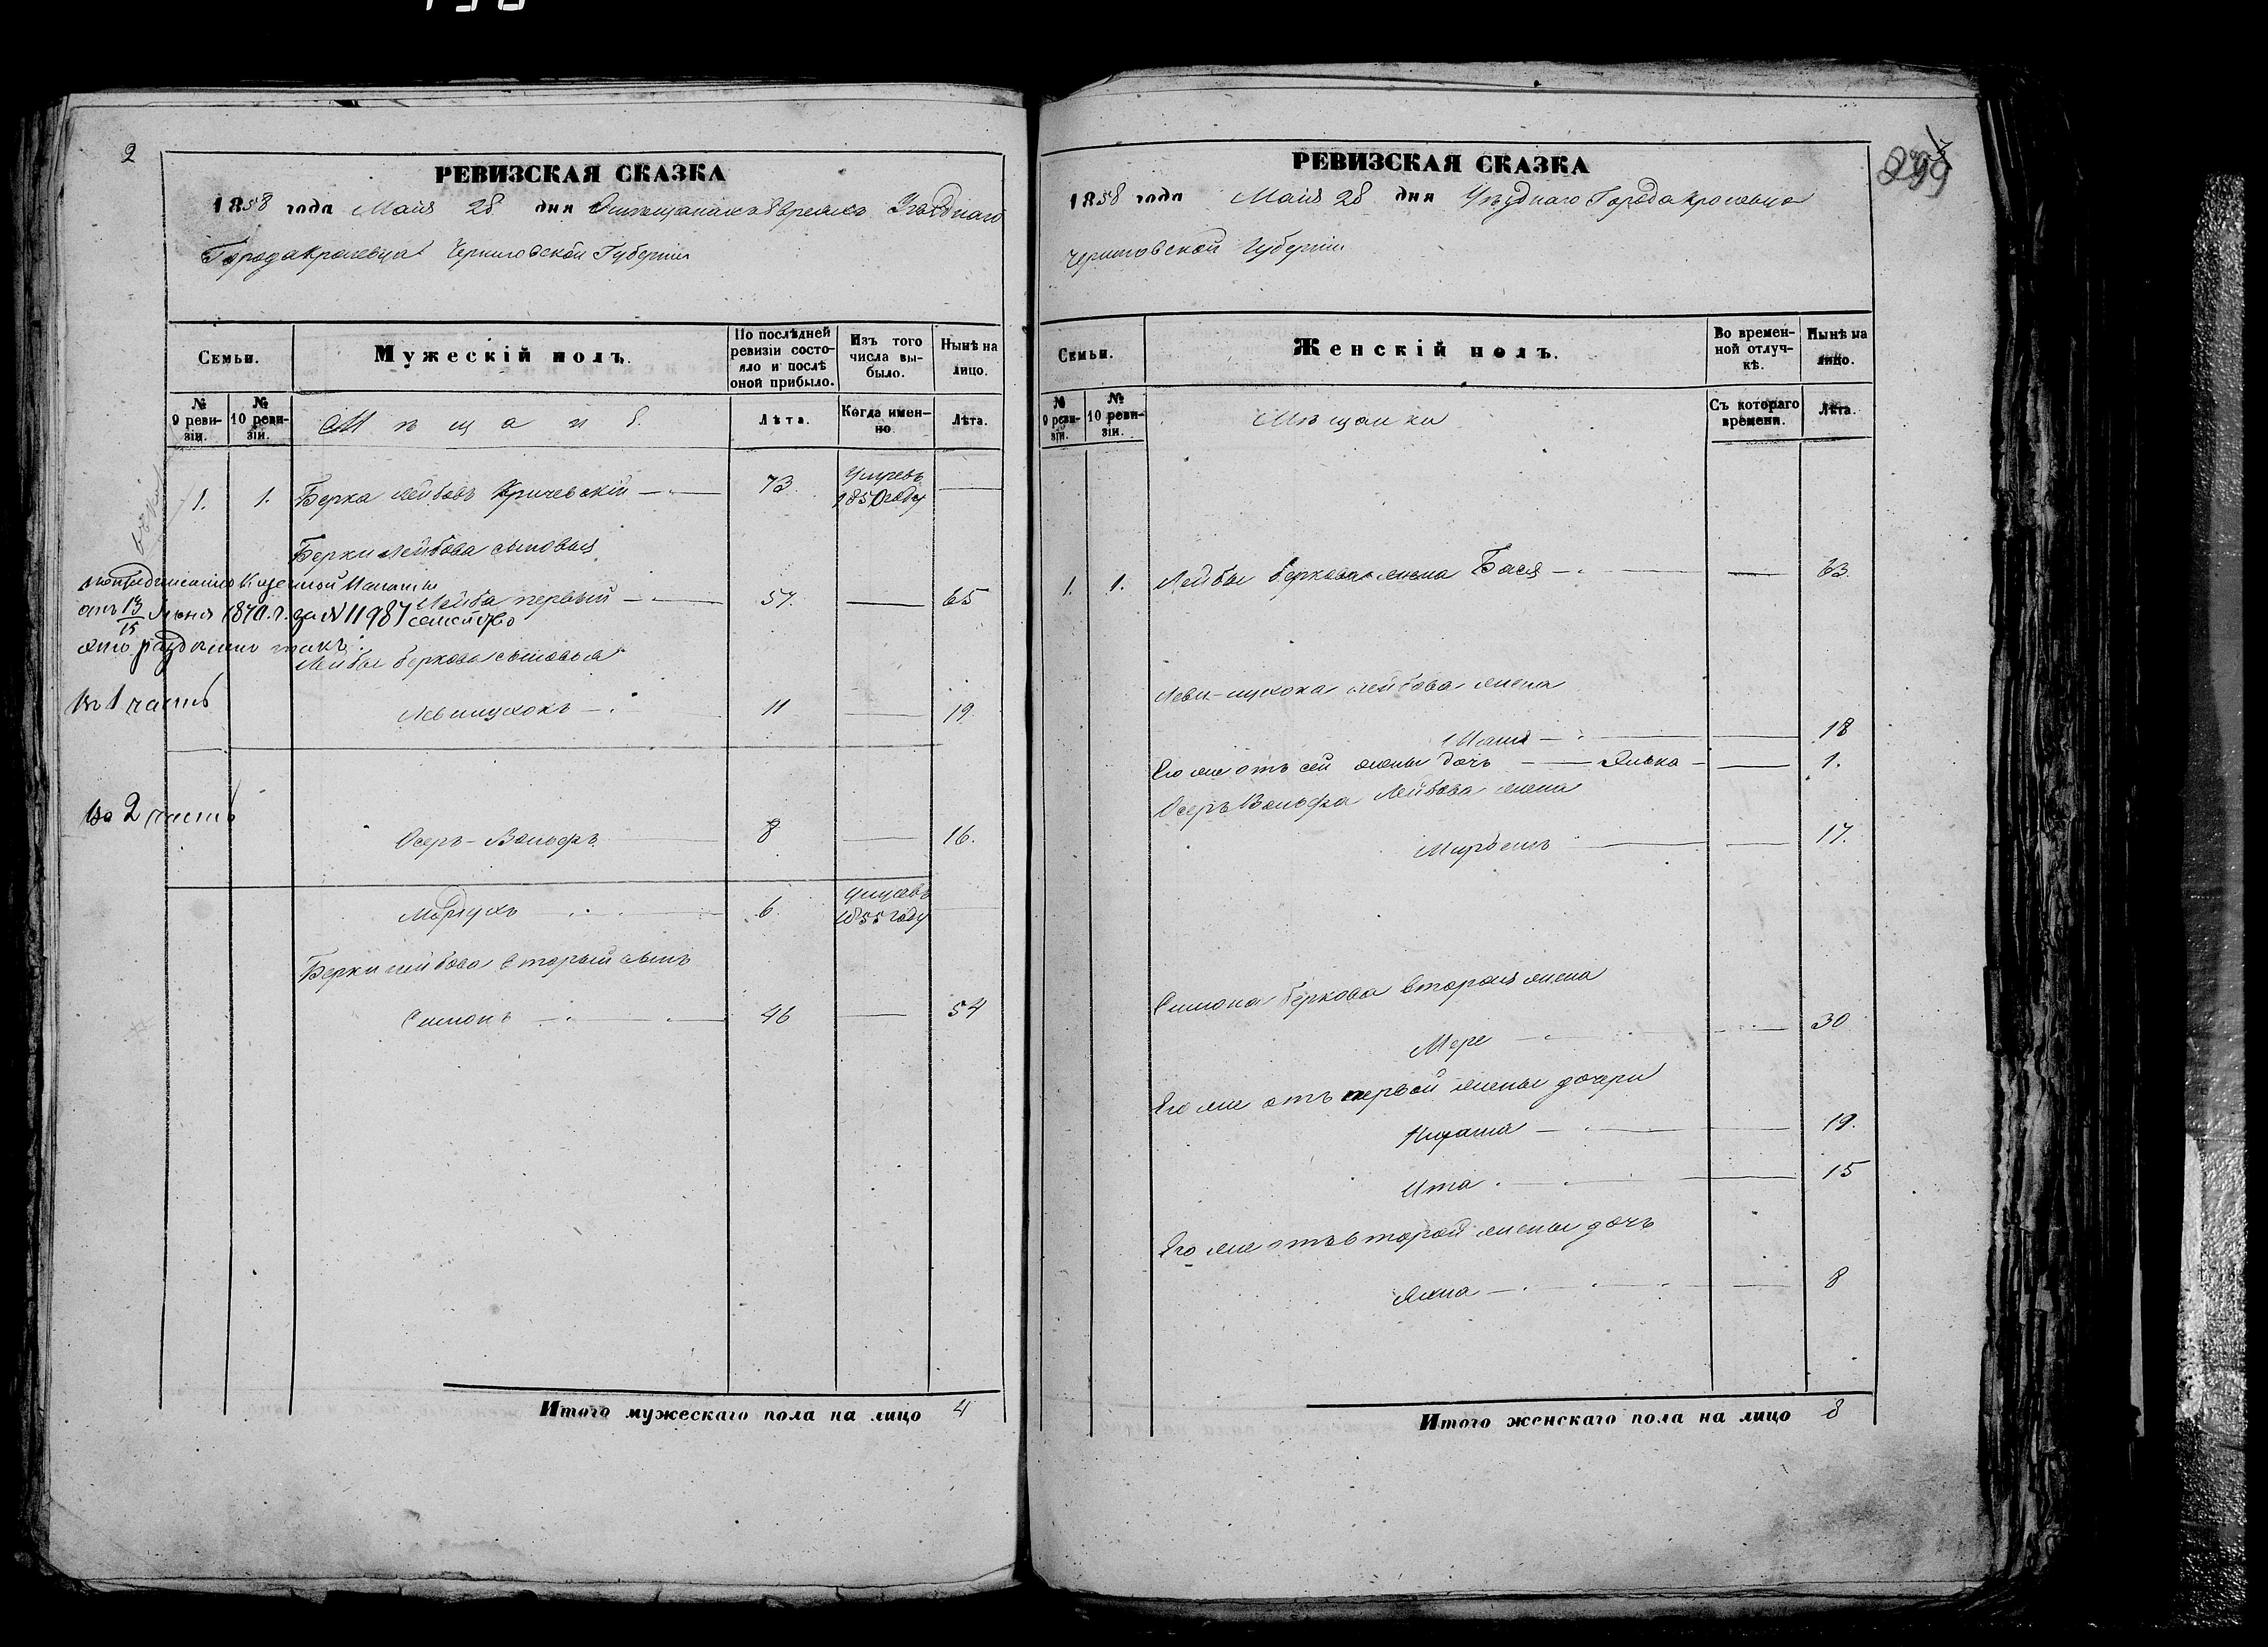 2
РЕВИЗСКАЯ СКАЗКА
1858 года Маія 28 дня О мѣщанахъ Евреяхъ Уѣзднаго
Города Кролевца Черниговской Губерніи
Семьи.
Мужескій полъ.
По послѣдней ревизіи состояло и послѣ оной прибыло.
Изъ того числа выбыло.
Нынѣ на лицо.
№ 9 ревизіи.
№ 10 ревизіи.
Мѣщане.
Лѣта.
Когда именно.
Лѣта.
1. 1. Берка Лейбовъ Кричевскій 73 Умеръ 1850 году
Берки Лейбова сыновья
По предписанію Казенной Палаты
Лейба первый 57. 65
отъ 13/15 Июня 1870. г. за N 11987 семейство
это раздѣлено такъ:
Лейбы Беркова сыновья
въ 1 часть
Левишухокъ 11 19.
во 2 часть
Осеръ-Вольфъ 8 16.
Мордухъ 6. умеръ 1855 году
Берки Лейбова вторый сынъ
Симонъ 46 54
Итого мужескаго пола на лицо 4
299
РЕВИЗСКАЯ СКАЗКА
1858 года Маія 28 дня Уѣзднаго Города Кролевца
Черниговской Губерніи
Семьи.
Женскій полъ.
Во временной отлучкѣ.
Нынѣ на лицо.
№ 9 ревизіи.
№ 10 ревизіи.
Мѣщанки
Съ котораго времени.
Лѣта.
1. 1. Лейбы Беркова жена Бася 63.
Леви-шухока Лейбова жена
18
Его же отъ сей жены дочь Элька 1.
Осеръ Вольфа Лейбова жена
17.
Симона Беркова вторая жена
Мере 30
Его же отъ первой жены дочери
19.
Ита 15
Его же отъ второй жены дочь
8
Итого женскаго пола на лицо 8